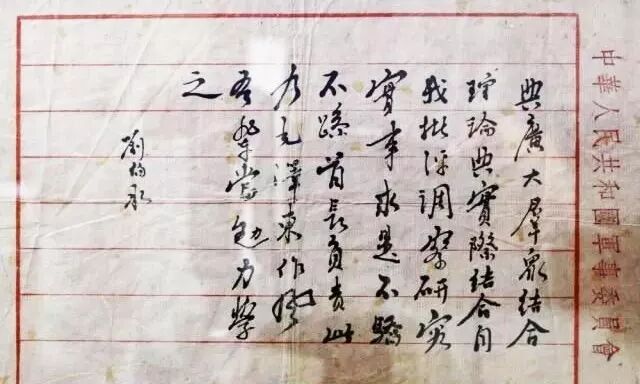 中華人民共和國軍事委員會
與廣大羣眾結合
理論與實際結合自
我批評調察研究
實事求是不驕
不躁首長負責此
乃毛澤東作風
吾輩當勉力學
之
劉伯承